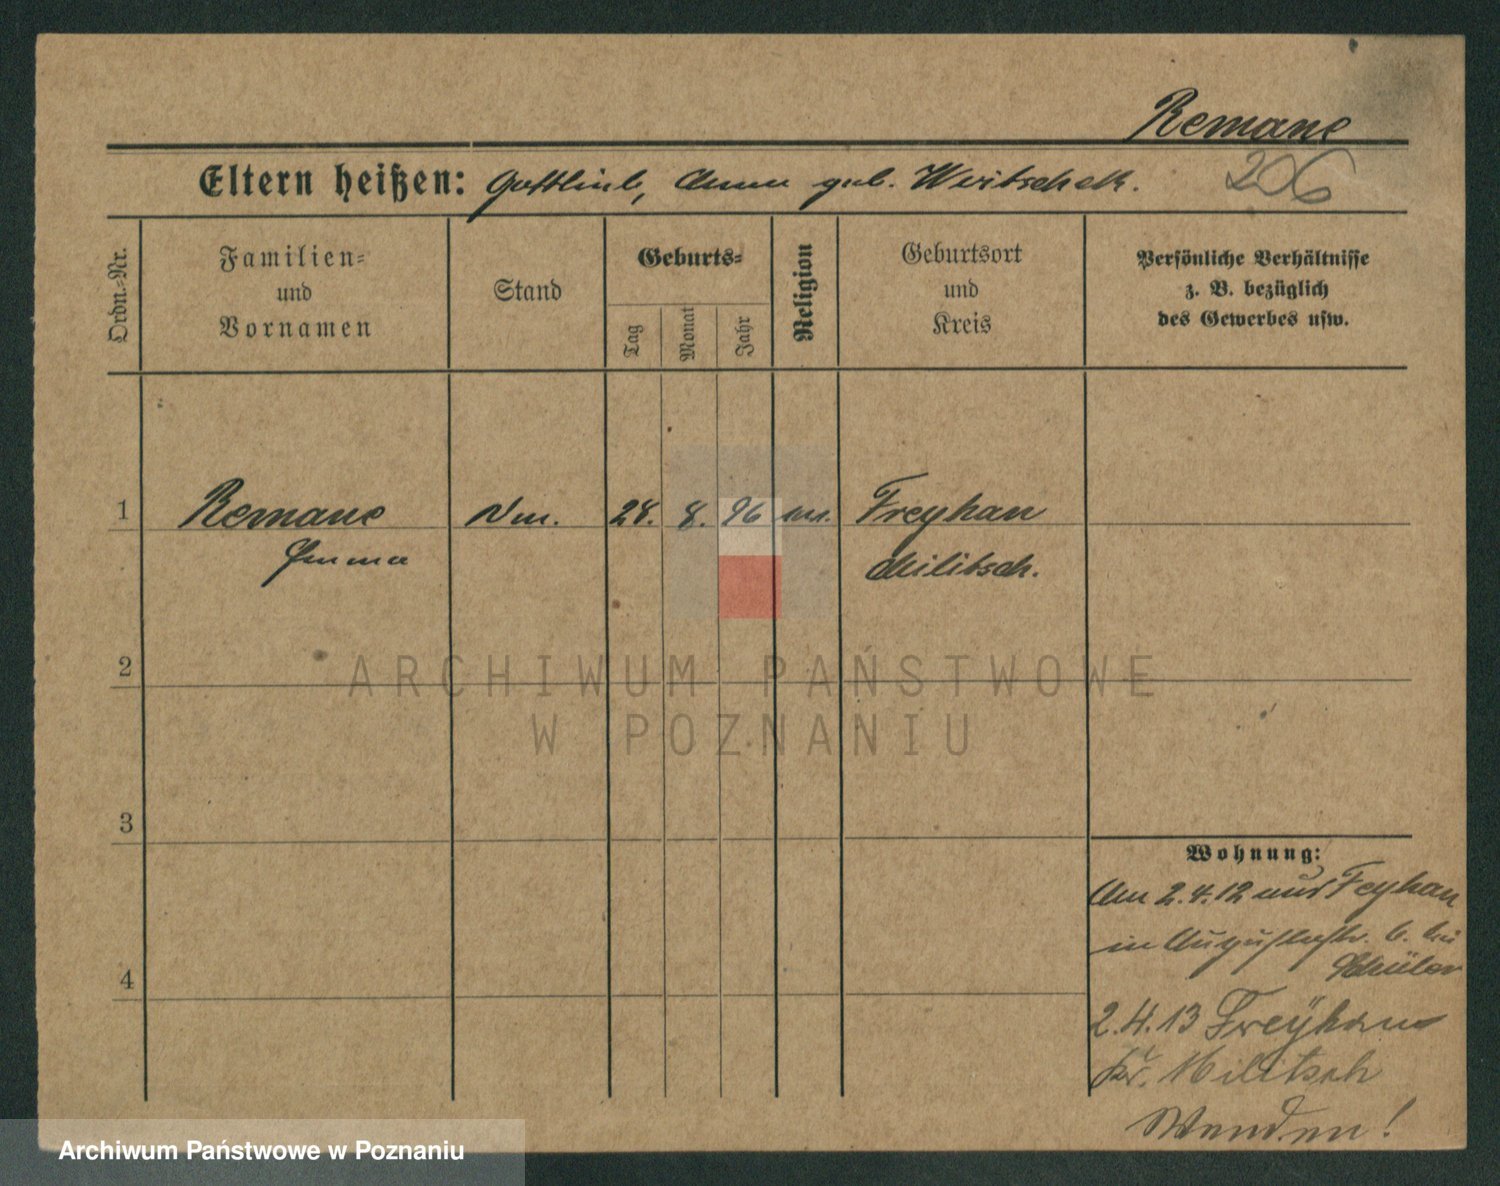 Remane
206
Eltern heißen: Gottlieb, Anna geb. Writschek.
Ordn.=Nr.
Familien=
und
Vornamen
Stand
Geburts=
Tag
Monat
Jahr
Religion
Geburtsort
und
Kreis
Persönliche Verhältnisse
z. B. bezüglich
des Gewerbes usw.
1 Remane 28. 8. 96 Freyhan
Emma Militsch.
2
ARCHIWUM PAŃSTWOWE
W POZNANIU
3
4
Wohnung:
Am 2.4.12 aus Feyhan
in Augustastr. 6. bei
Schüler
2.4.13 Freyhan
Kr. Militsch
Wenden!
Archiwum Państwowe w Poznaniu